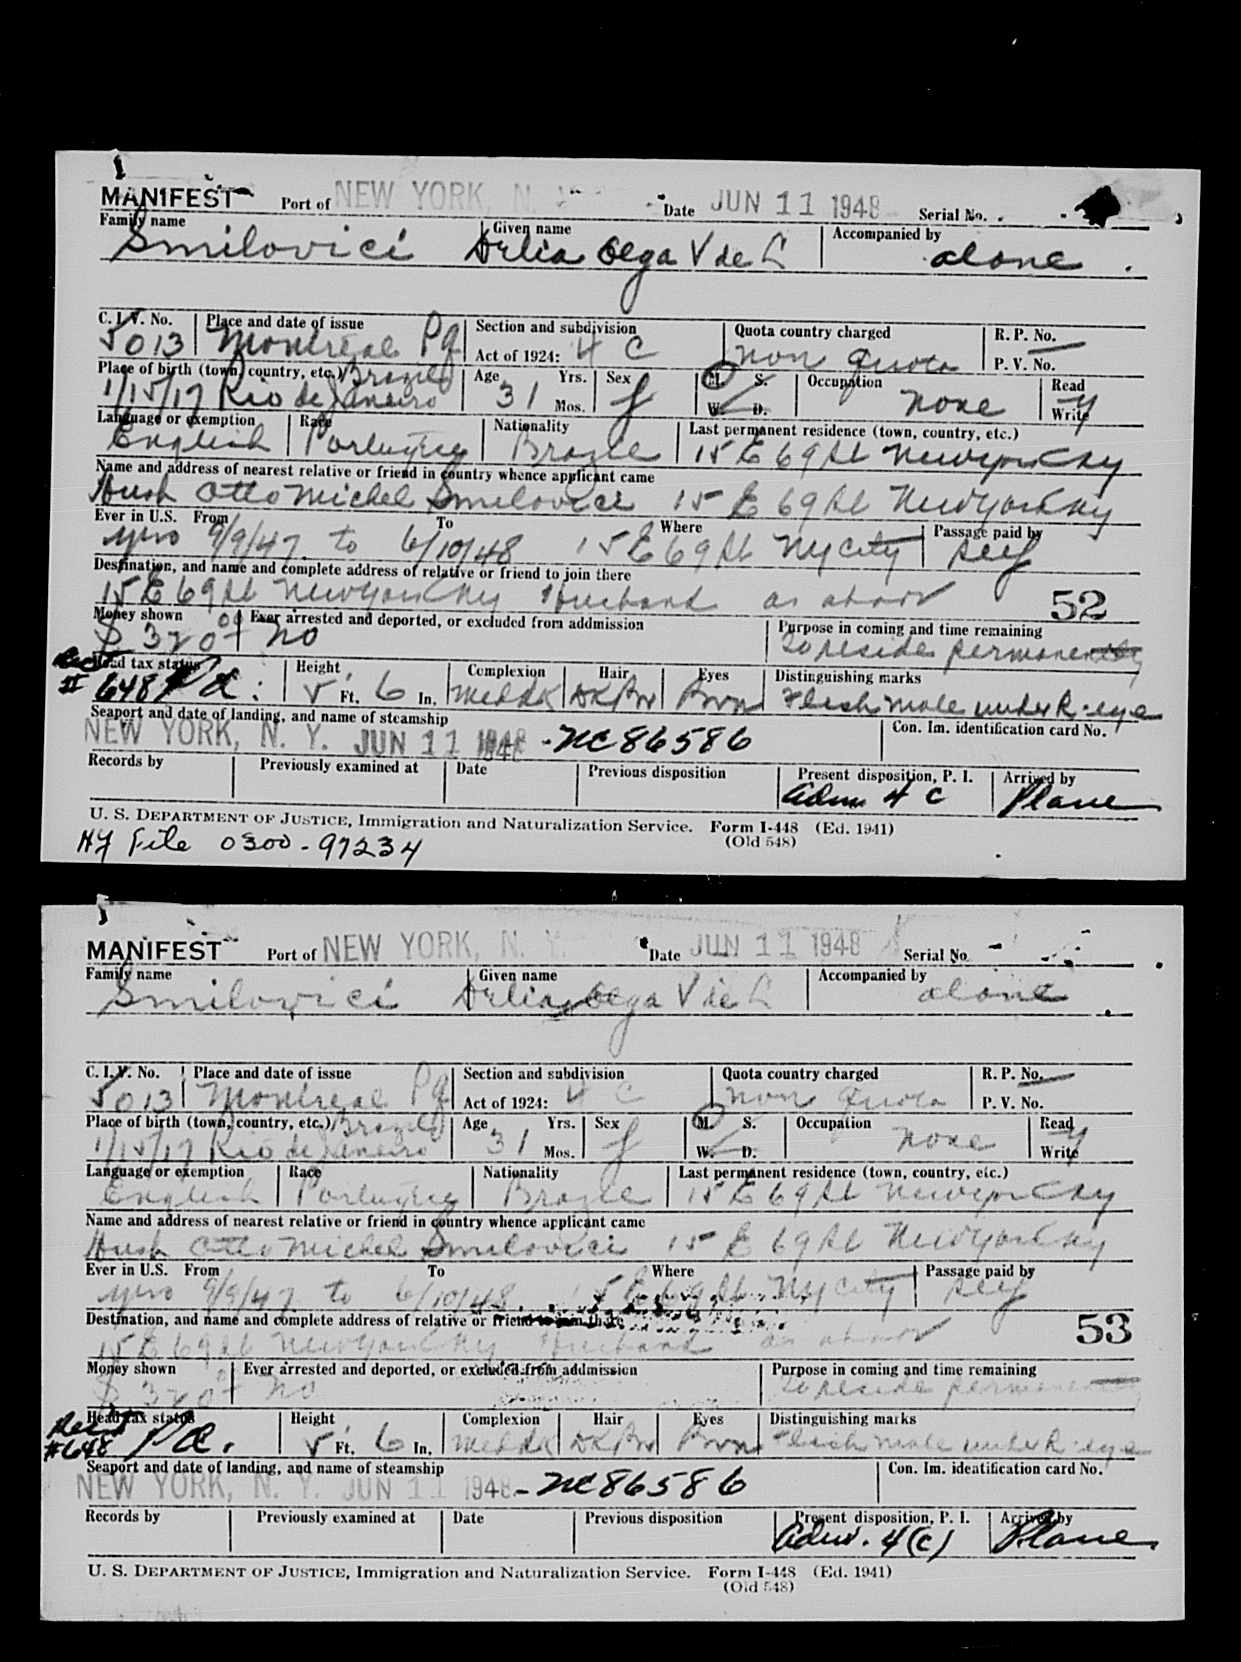 MANIFEST Port of NEW YORK, N. Date JUN 11 1948 Serial No.
Family name Given name Accompanied by
Smilovici Delia Olga V de L alone
C. I. V. No. Place and date of issue Section and subdivision Quota country charged R. P. No.
5013 Montreal Pq Act of 1924: 4 C non quota P. V. No.
Place of birth (town, country, etc.) Brazil Age Yrs. Sex M. S. Occupation Read
1/15/17 Rio de Janeiro 31 Mos. f W. D. none Write y
Language or exemption Race Nationality Last permanent residence (town, country, etc.)
English Portugese Brazile 15 E 69 St New York NY
Name and address of nearest relative or friend in country whence applicant came
Husb Otto Michel Smilovici 15 E 69 St New York NY
Ever in U.S. From To Where Passage paid by
yes 9/9/47 to 6/10/48 15 E 69 St NY City self
Destination, and name and complete address of relative or friend to join there
15 E 69 St New York NY Husband as above
52
Money shown Ever arrested and deported, or excluded from addmission Purpose in coming and time remaining
$ 320 00 no To reside permanently
Head tax status Height Complexion Hair Eyes Distinguishing marks
648 Pd. 5 Ft. 6 In. Med dk Dk Br Brwn Flesh mole under R. eye
Seaport and date of landing, and name of steamship Con. Im. identification card No.
NEW YORK, N. Y. JUN 11 1948 - NC86586
Records by Previously examined at Date Previous disposition Present disposition, P. I. Arrived by
Adm 4 C Plane
U. S. DEPARTMENT OF JUSTICE, Immigration and Naturalization Service. Form I-448 (Ed. 1941)
(Old 548)
NY File 0300-97234
MANIFEST Port of NEW YORK, N. Y. Date JUN 11 1948 Serial No
Family name Given name Accompanied by
Smilovici Delia Olga V de L alone
C. I. V. No. Place and date of issue Section and subdivision Quota country charged R. P. No.
5013 Montreal Pq Act of 1924: 4 C non quota P. V. No.
Place of birth (town, country, etc.) Brazil Age Yrs. Sex M. S. Occupation Read
1/15/17 Rio de Janeiro 31 Mos. f W. D. none Write y
Language or exemption Race Nationality Last permanent residence (town, country, etc.)
English Portugese Brazile 15 E 69 St New York NY
Name and address of nearest relative or friend in country whence applicant came
Husb Otto Michel Smilovici 15 E 69 St New York NY
Ever in U.S. From To Where Passage paid by
yes 9/9/47 to 6/10/48 15 E 69 St NY City self
Destination, and name and complete address of relative or friend to join there
15 E 69 St New York NY Husband as above
53
Money shown Ever arrested and deported, or excluded from addmission Purpose in coming and time remaining
$ 320 no To reside permanently
Head tax status Height Complexion Hair Eyes Distinguishing marks
#648 Pd. 5 Ft. 6 In. Med dk Dk Br Brwn Flesh mole under R. eye
Seaport and date of landing, and name of steamship Con. Im. identification card No.
NEW YORK, N. Y. JUN 11 1948 - NC86586
Records by Previously examined at Date Previous disposition Present disposition, P. I. Arrived by
Adm. 4(c) Plane
U. S. DEPARTMENT OF JUSTICE, Immigration and Naturalization Service. Form I-448 (Ed. 1941)
(Old 548)